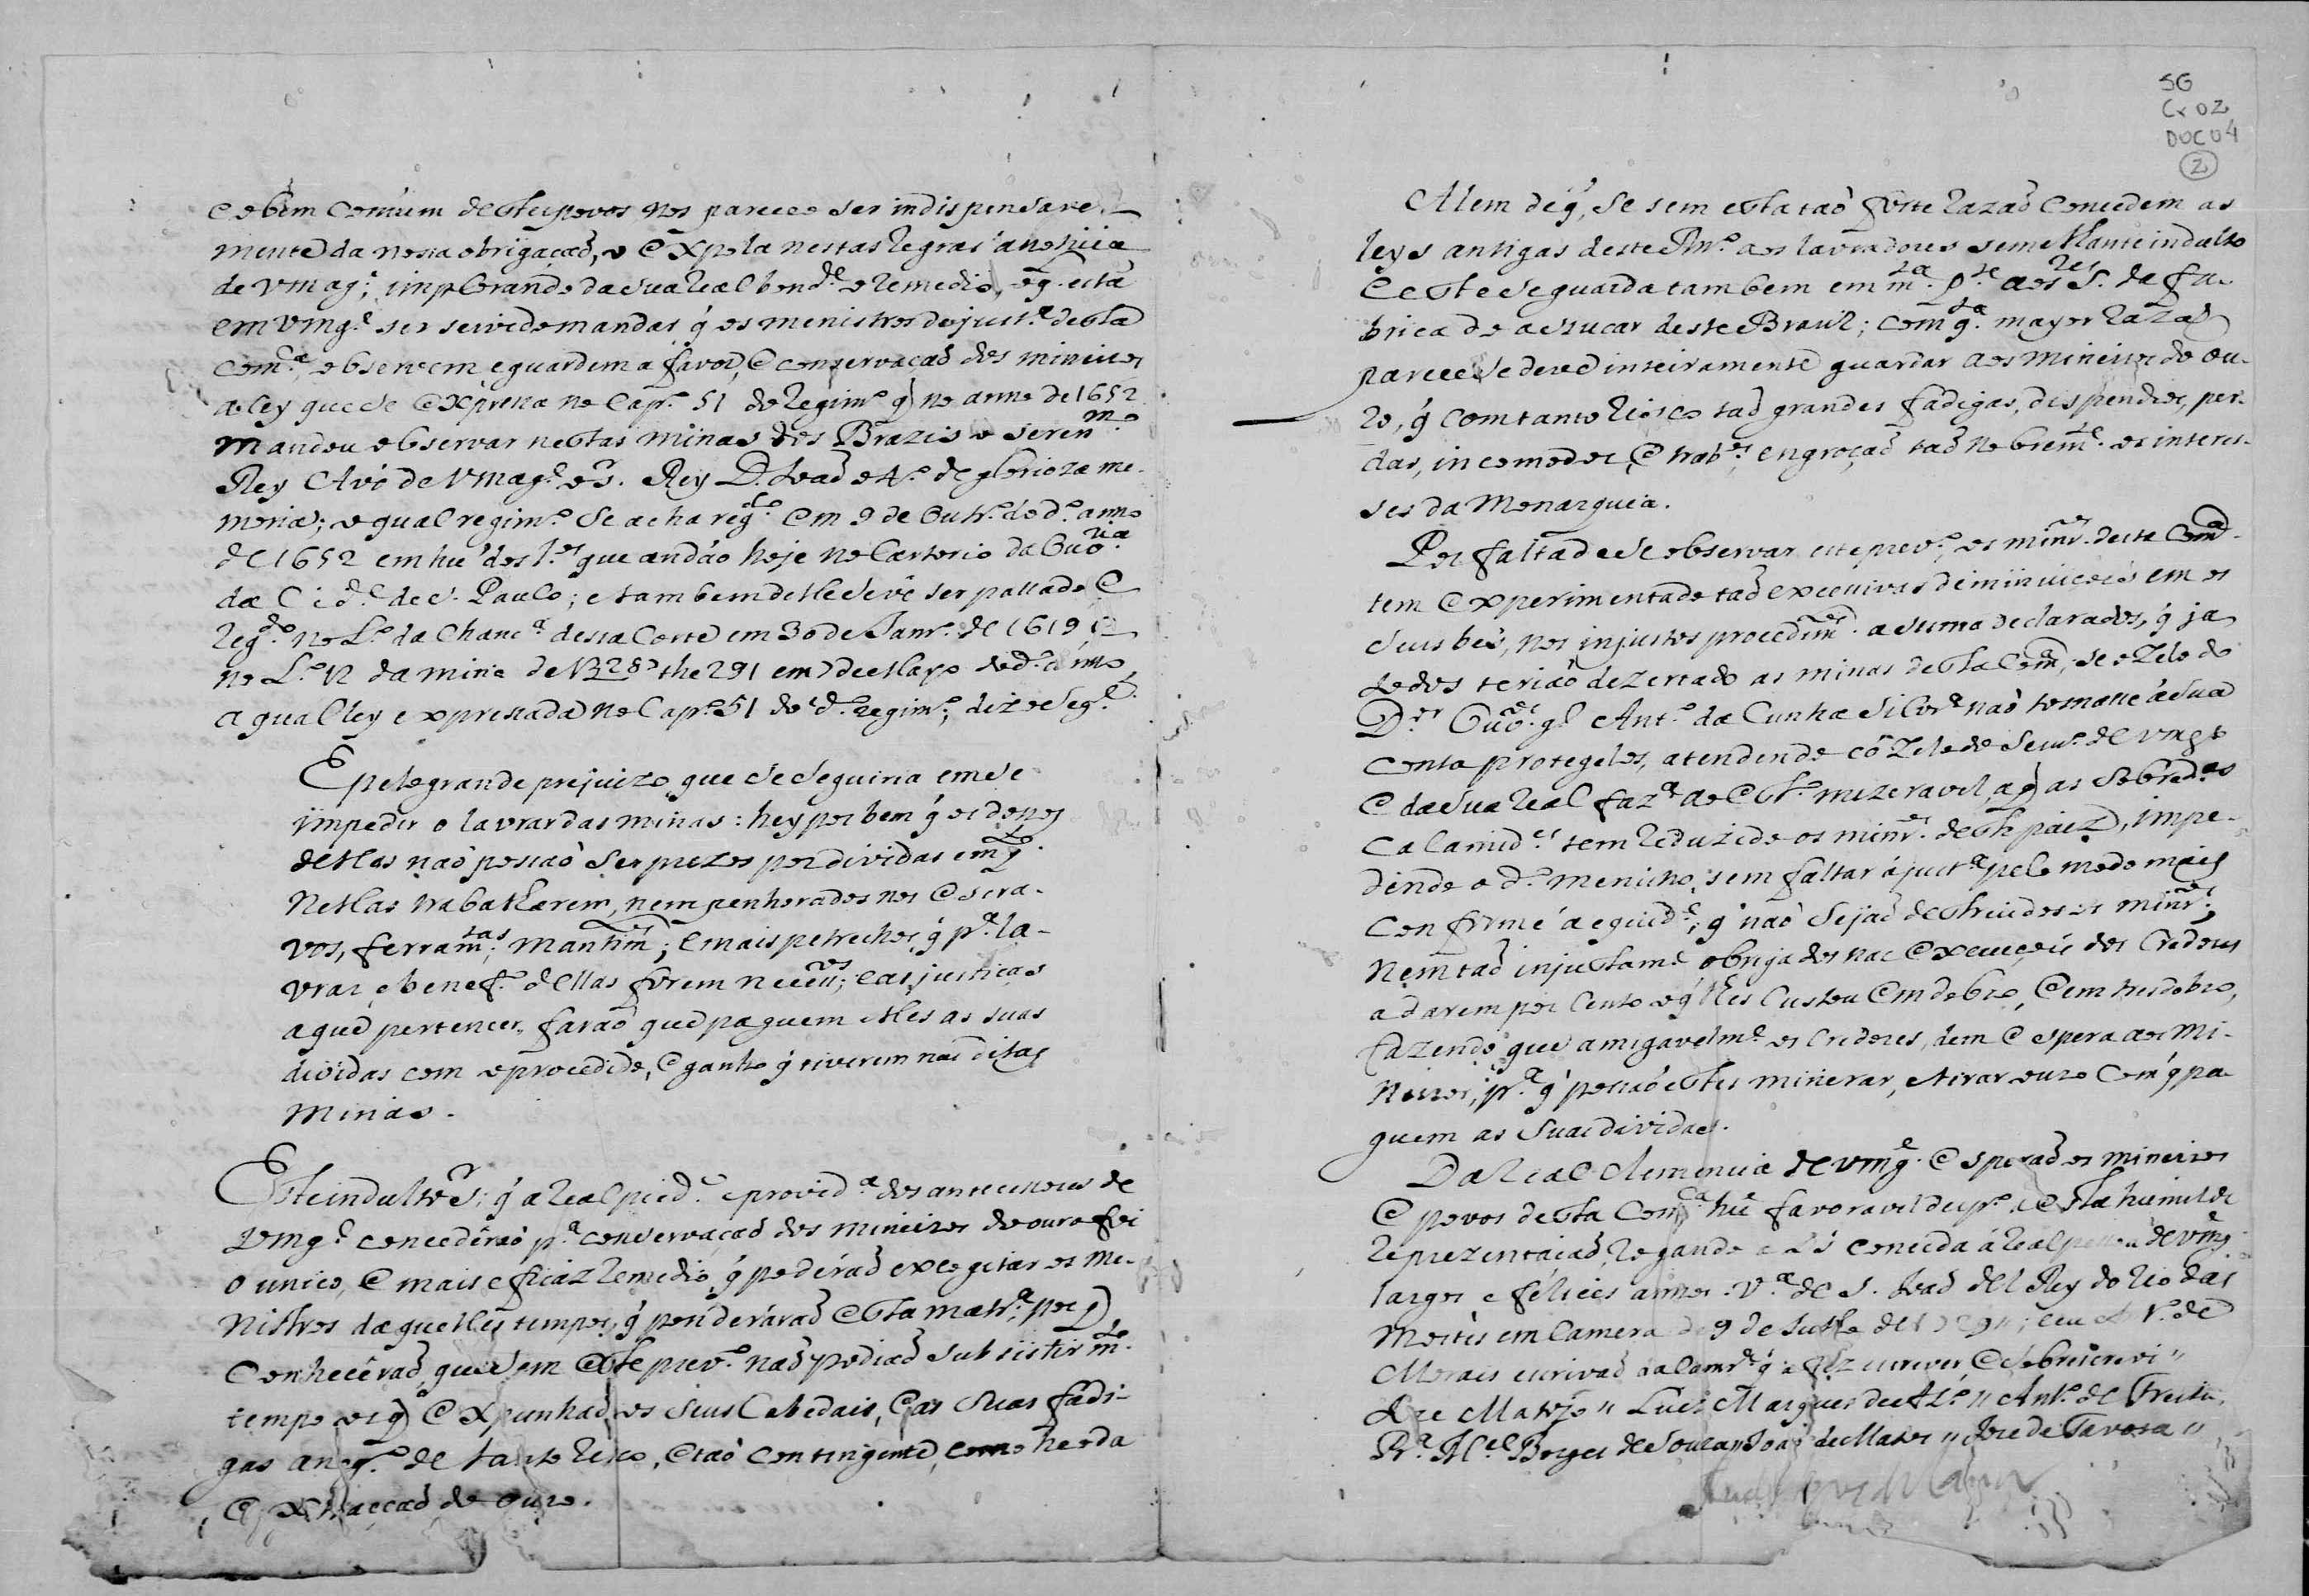 e o bem comum destes povos nos pareceo ser indispensavel
mente da nossa obrigaçaõ, o expola nestas regras a noticia
de VMag.e; implorando da sua Real bond.e o remedio, o q. está
em VMg.e ser servido mandar q́ os menistros de just.a desta
com.ca observem e guardem a favor, e conservaçaõ dos mineiros
a ley que se expressa no Cap.o 51 do Regim.o q̃ no anno de 1652
mandou observar nestas minas dos Brazis o seren.mo
Rey Avó de VMag.e o S.r Rey D. Joaõ o 4.o de glorioza me-
moria; o qual regim.o se acha reg.do em 9 de Outr.o do d.o anno
de 1652 em hũ dos l.os que andáo hoje no Cartorio da Ouv.ria
da Cid.e de S. Paulo; e tambem delle se vê ser passado e
reg.do no L.o da Chanc.a desta Corte em 30 de Janr.o de 1619 e
no L.o 12 da mina de the 291 em 7 de Março do d.o anno,
a qual ley expressada no Cap.o 51 do d.o regim.o, diz o seg.te
E pelo grande prejuizo que se seguiria em se
impedir o lavrar das minas: hey por bem q́ os donos
dellas naõ possaõ ser prezos por dividas emq.to
nellas trabalharem, nem penhorados nos escra-
vos, ferram.tas; mantim.tos; e mais petrechos q́ p.a la-
vrar, e benef.o dellas forem necess.os; e as justiças
a que pertencer, faraõ que paguem elles as suas
dividas com o procedido, e ganho q́ tiverem nas ditas
minas.
Este indulto S.r; q́ a Real pied.e e provid.a dos antecessores de
VMg.e concedêraõ p.a conservaçaõ dos mineiros do ouro foi
o unico, e mais eficaz remedio, q́ podéraõ excogitar os me-
nistros daquelles tempos, q́ ponderáraõ esta matr.a por q̃
conhecêraõ, que sem este prev.o naõ podiaõ subsistir m.to
tempo os q̃ expunhaõ os seus cabedais, e as suas fadi-
gas a neg.o de tanto risco, e taõ contingente, como he o da
extracçaõ do ouro.
SG
Cx 02
DOC 04
2
Alem de q̃, se sem esta taõ forte razaõ concedem as
leys antigas deste Rn.o aos lavradores semelhante indulto
e este se guarda tambem em m.ta p.te aos S.res da fa-
brica do assucar deste Brazil; com q.ta mayor razaõ
parece se deve inteiramente guardar aos mineiros do ou-
ro, q́ com tanto risco taõ grandes fadigas, dispendios, per-
das, incomodos, e trab.os engroçaõ taõ nobrem.te os interes-
ses da Monarquia.
Por falta de se observar este prev.o, os minr.os deste Com.ca
tem experimentado taõ excessivas diminuiçoẽs em os
seus bẽs, nos injustos procedim.tos asima declarados, q́ ja
todos teriáo dezertado as minas desta Com.ca, se o zelo do
D.or Ouv.or g.l Ant.o da Cunha Silvr.a naõ tomasse á sua
conta protegelos, atendendo cõ zelo do Serv.o de VMg.e
e da sua Real faz.a ao est.o mizeravel, a q̃ as sobred.as
calamid.es tem reduzido os minr.os deste paiz, impe-
dindo o d.o menistro, sem faltar á just.a pelo modo mais
conforme á equid.e; q́ naõ sejaõ destruidos os minr.os,
nem taõ injustam.e obrigados nas execuçoẽs dos Credores
a darem por cento o q́ lhes custou em dobro, e em tresdobro,
fazendo que amigavelm.e os Credores dem espera aos mi-
neiros, p.a q́ possaõ estes minerar, e tirar ouro com q́ pa-
guem as suas dividas.
Da Real Clemencia de VMg.e esperaõ os mineiros
e povos desta Com.ca hũ favoravel desp.o a esta humilde
reprezentaçaõ, rogando a D.s conceda á Real pessoa de VMg.e
largos e felices annos. V.a de S. Joaõ del Rey do Rio das
Mortes em Camera de 9 de Julho de 1729 //; e eu V.e de
Morais escrivaõ da Camr.a q́ a fiz escrever, e sobescrevi //
Joze Matozo // Luis Marques de // Ant.o de Freitas
Rª. M.el Borges de Souza // Joaõ de Matos // Joze de Tavora //